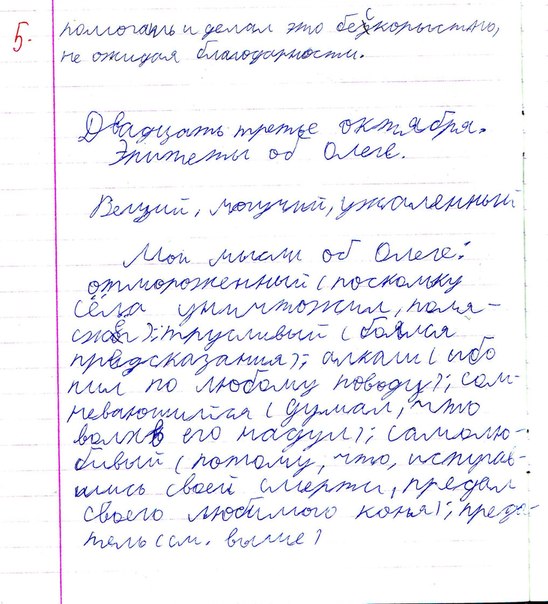 5-
помогать и делал это бескорыстно,
не ожидая благодарности.
Двадцать третье октября.
Эпитеты об Олеге.
Вещий, могучий, ужаленный
Мои мысли об Олеге:
отмороженный (поскольку
сёла уничтожил, поля-
); трусливый (боялся
предсказания); алкаш (ибо
пил по любому поводу); сом-
невающийся (думал, что
волхв его надул); самолю-
бивый (потому, что, испугав-
шись своей смерти, предал
своего любимого коня); преда-
тель (см. выше)